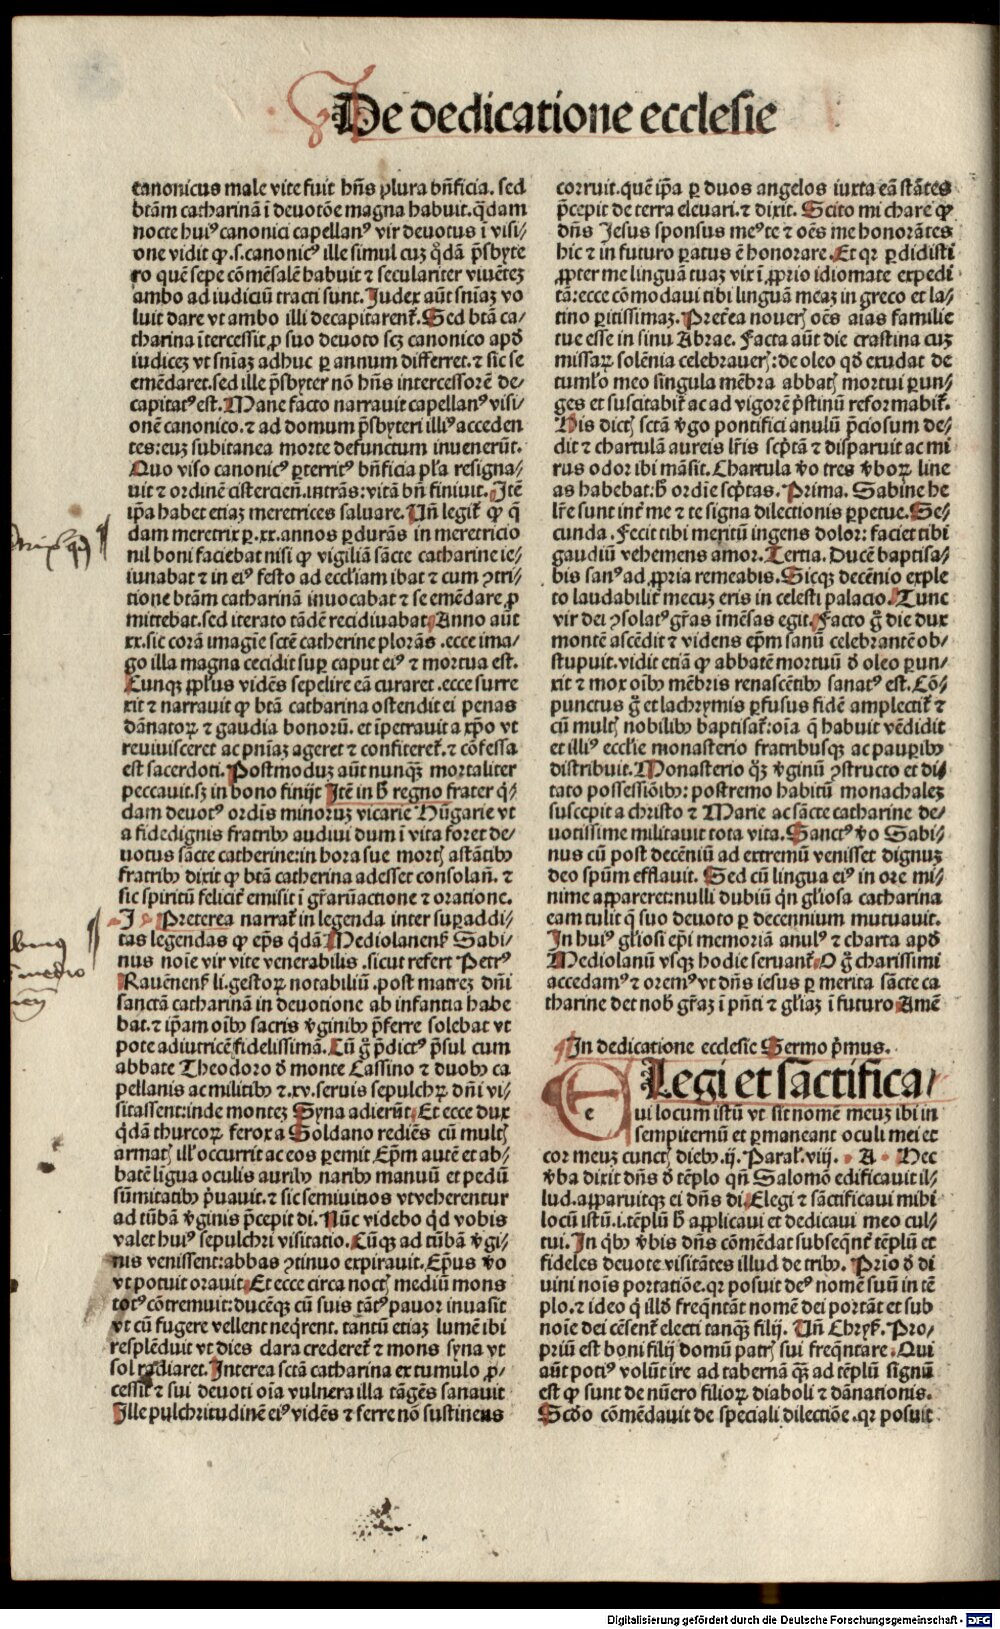 De dedicatione ecclesie
canonicus male vite fuit hñs plura bñficia. sed
btãm catharinã ĩ deuotõe magna habuit. q̃dam
nocte huiꝰ canonici capellanꝰ vir deuotus ĩ visi⸗
one vidit ꝙ .s. canonicꝰ ille simul cuꝫ q̊dã p̃sbyte
ro quẽ sepe cõmẽsalẽ habuit ⁊ seculariter viuẽteꝫ
ambo ad iudiciũ tracti sunt. Judex aũt sniaꝫ vo
luit dare vt ambo illi decapitarent̃. Sed btã ca⸗
tharina ĩtercessit ꝓ suo deuoto scꝫ canonico apđ
iudiceꝫ vt sniaꝫ adhuc ꝑ annum differret. ⁊ sic se
emẽdaret. sed ille p̃sbyter nõ hñs intercessorẽ de⸗
capitatꝰ est. Mane facto narrauit capellanꝰ visi⸗
onẽ canonico. ⁊ ad domum p̃sbyteri illiꝰ acceden
tes: euꝫ subitanea morte defunctum inuenerũt.
Quo viso canonicꝰ ꝑterritꝰ bñficia pl̃a resigna⸗
uit ⁊ ordinẽ cistercieñ. intrãs: vitã bñ finiuit. Jtẽ
ip̃a habet etiaꝫ meretrices saluare. Uñ legit̃ ꝙ q̃
dam meretrix ꝑ .xx. annos ꝑdurãs in meretricio
nil boni faciebat nisi ꝙ vigiliã sãcte catharine ie⸗
iunabat ⁊ in eiꝰ festo ad eccl̃iam ibat ⁊ cum ꝯtri⸗
tione btãm catharinã inuocabat ⁊ se emẽdare ꝓ
mittebat. sed iterato tãdẽ recidiuabat. Anno aũt
xx. sic corã imagĩe sctẽ catherine plorãs. ecce ima⸗
go illa magna cecidit suꝑ caput eiꝰ ⁊ mortua est.
Cunqꝫ ꝓpl̃us vidẽs sepelire eã curaret. ecce surre
xit ⁊ narrauit ꝙ btã catharina ostendit ei penas
dãnatoꝝ ⁊ gaudia bonorũ. et ĩpetrauit a xp̃o vt
reuiuisceret ac pñiaꝫ ageret ⁊ confiteret̃. ⁊ cõfessa
est sacerdoti. Postmoduꝫ aũt nunqꝫ̃ mortaliter
peccauit. sꝫ in bono finijt Jtẽ in ħ regno frater q̃⸗
dam deuotꝰ ordĩs minoruꝫ vicarie Hũgarie vt
a fidedignis fratribꝰ audiui dum ĩ vita foret de⸗
uotus sãcte catherine: in hora sue mortꝭ astãtibꝰ
fratribꝰ dixit ꝙ btã catharina adesset consolañ. ⁊
sic spiritũ felicit̃ emisit ĩ gr̃aꝝ actione ⁊ oratione.
J Preterea narrat̃ in legenda inter suꝑaddi⸗
tas legendas ꝙ ep̃s q̊dã Mediolaneñ Sabi⸗
nus noĩe vir vite venerabilis. sicut refert Petrꝰ
Rauẽneñ li. gestoꝝ notabiliũ. post matreꝫ dñi
sanctã catharinã in deuotione ab infantia habe
bat. ⁊ ip̃am oĩbꝰ sacris v̓ginibꝰ p̃ferre solebat vt
pote adiutricẽ fidelissimã. Cũ g̊ p̃dictꝰ p̃sul cum
abbate Theodoro đ monte Cassino ⁊ duobꝰ ca
pellanis ac militibꝰ ⁊ .xv. seruis sepulchꝝ dñi vi⸗
sitassent: inde monteꝫ Syna adierũt. Et ecce dux
q̊dã thurcoꝝ ferox a Soldano rediẽs cũ multꝭ
armatꝭ illꝭ occurrit ac eos ꝑemit Ep̃m autẽ et ab⸗
batẽ lĩgua oculis auribꝰ naribꝰ manuũ et pedũ
sũmitatibꝰ p̃uauit. ⁊ sic semiuiuos vt veherentur
ad tũbã v̓ginis p̃cepit di. Nũc videbo q̊d vobis
valet huiꝰ sepulchri visitatio. Cũqꝫ ad tũbã v̓gi⸗
nis venissent: abbas ꝯtinuo expirauit. Ep̃us v̊o
vt potuit orauit. Et ecce circa noctꝭ mediũ mons
totꝰ cõtremuit: ducẽqꝫ cũ suis tãtꝰ pauor inuasit
vt cũ fugere vellent neq̃rent. tantũ etiaꝫ lumẽ ibi
resplẽduit vt dies clara crederet̃ ⁊ mons syna vt
sol radiaret. Jnterea sctã catharina ex tumulo ꝓ⸗
cessit ⁊ sui deuoti oĩa vulnera illa tãgẽs sanauit
Jlle pulchritudinẽ eiꝰ vidẽs ⁊ ferre nõ sustinens
corruit. quẽ ip̃a ꝑ duos angelos iuxta eã stãtes
p̃cepit de terra eleuari. ⁊ dixit. Scito mi chare ꝙ
dñs Jesus sponsus meꝰ te ⁊ oẽs me honorãtes
hic ⁊ in futuro ꝑatus ẽ honorare. Et qꝛ ꝑdidisti
ꝓpter me linguã tuaꝫ vix ĩ ꝓprio idiomate expedi
tã: ecce cõmodaui tibi linguã meaꝫ in greco et la⸗
tino ꝑitissimaꝫ. Pret̃ea nouerꝭ oẽs aĩas familie
tue esse in sinu Abrae. Facta aũt die crastina cuꝫ
missaꝝ solẽnia celebrauerꝭ: de oleo qđ exudat de
tumł̃o meo singula mẽbra abbatꝭ mortui ꝑun⸗
ges et suscitabit̃ ac ad vigorẽ p̃stinũ reformabit̃.
His dictꝭ sctã v̓go pontifici anulũ p̃ciosum de⸗
dit ⁊ chartulã aureis lr̃is scp̃tã ⁊ disparuit ac mi
rus odor ibi mãsit. Chartula v̊o tres v̓boꝝ line
as habebat: ħ ordĩe scp̃tas. Prima. Sabine he
lr̃e sunt int̃ me ⁊ te signa dilectionis ꝑpetue. Se⸗
cunda. Fecit tibi meritũ ingens dolor: faciet tibi
gaudiũ vehemens amor. Tertia. Ducẽ baptisa⸗
bis sanꝰ ad ꝓpria remeabis. Sicqꝫ decẽnio exple
to laudabilit̃ mecuꝫ eris in celesti palacio. Tunc
vir dei ꝯsolatꝰ gr̃as ĩmẽsas egit. Facto g̊ die dux
montẽ ascẽdit ⁊ videns ep̃m sanũ celebrantẽ ob⸗
stupuit. vidit etiã ꝙ abbatẽ mortuũ đ oleo ꝑun⸗
xit ⁊ mox oĩbꝰ mẽbris renascẽtibꝰ sanatꝰ est. Cõ⸗
punctus g̊ et lachrymis ꝑfusus fidẽ amplectit̃ ⁊
cũ multꝭ nobilibꝰ baptisat̃: oĩa q̃ habuit vẽdidit
et illiꝰ eccl̃ie monasterio fratribusqꝫ ac pauꝑibꝰ
distribuit. Monasterio q̊ꝫ v̓ginũ ꝯstructo et di⸗
tato possessiõibꝰ: postremo habitũ monachaleꝫ
suscepit a christo ⁊ Marie ac sãcte catharine de⸗
uotissime militauit tota vita. Sanctꝰ v̊o Sabi⸗
nus cũ post decẽniũ ad extremũ venisset dignuꝫ
deo spũm efflauit. Sed cũ lingua eiꝰ in ore mi⸗
nime appareret: nulli dubiũ q̃n gl̃iosa catharina
eam tulit q̃ suo deuoto ꝑ decennium mutuauit.
Jn huiꝰ gl̃iosi ep̃i memoriã anulꝰ ⁊ charta apđ
Mediolanũ vsqꝫ hodie seruant̃. O g̊ charissimi
accedamꝰ ⁊ oremꝰ vt dñs iesus ꝑ merita sãcte ca
tharine det nob̃ gr̃aꝫ ĩ pñti ⁊ gl̃iaꝫ ĩ futuro Amẽ
Jn dedicatione ecclesie Sermo p̃mus.
Elegi et sãctifica⸗
ui locum istũ vt sit nomẽ meuꝫ ibi in
sempiternũ et ꝑmaneant oculi mei et
cor meuꝫ cunctꝭ diebꝰ. ij. Paral̃. viij. A Hec
v̓ba dixit dñs đ tẽplo qñ Salomõ edificauit il⸗
lud. apparuitqꝫ ei dñs di. Elegi ⁊ sãctificaui mihi
locũ istũ. i. tẽplũ ħ applicaui et dedicaui meo cul⸗
tui. Jn q̊bꝰ v̓bis dñs cõmẽdat subseq̃nt̃ tẽplũ et
fideles deuote visitãtes illud de tribꝰ. Prio đ di
uini noĩs portatiõe. qꝛ posuit deꝰ nomẽ suũ in tẽ
plo. ⁊ ideo q̇ illđ freq̃ntãt nomẽ dei portãt et sub
noĩe dei cẽsent̃ electi tanqꝫ̃ filij. Uñ Chryš. Pro⸗
priũ est boni filij domũ patrꝭ sui freq̃ntare. Qui
aũt potiꝰ volũt ire ad tabernã qꝫ̃ ad tẽplũ signũ
est ꝙ sunt de nũero filioꝝ diaboli ⁊ dãnationis.
Scđo cõmẽdauit de speciali dilectiõe. qꝛ posuit
Digitalisierung gefördert durch die Deutsche Forschungsgemeinschaft - DFG